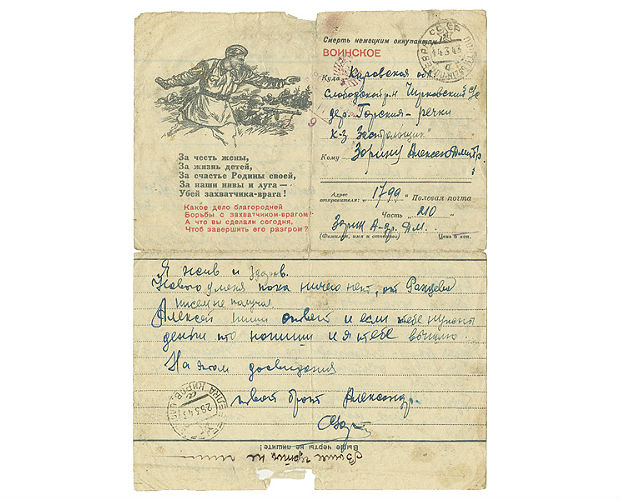 Смерть немецким оккупантам!
ВОИНСКОЕ
Куда Кировская обл.
Слободской р-н
дер. Горская-речки
к-з Застольщик"
Кому Зорину Алексею Дмитр
Адрес отправителя: 1799 Полевая почта
Часть 210
Зорин А-др. Дм.
(Фамилия, имя и отчество) Цена 5 коп.
За честь жены,
За жизнь детей,
За счастье Родины своей,
За наши нивы и луга —
Убей захватчика-врага!
Какое дело благородней
Борьбы с захватчиком-врагом?
А что вы сделали сегодня,
Чтоб завершить его разгром?
Я жив и здоров.
Нового у меня пока ничего нет, от
писем не получал
Алексей пиши ответ и если тебе нужны
деньги то напиши и я тебе вышлю.
На этом досвидания
твой брат Александр.
Выше черты не пишите!